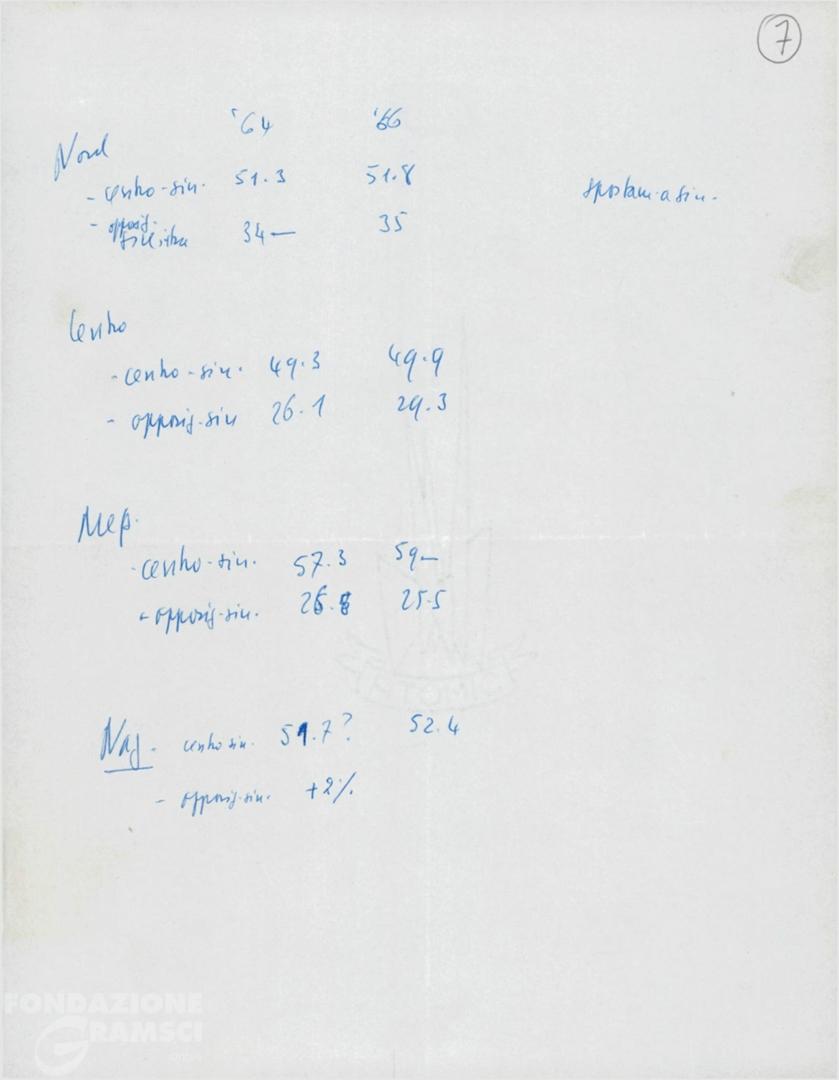 7
'64 '66
Nord
- centro-sin. 51.3 51.8 spostam. a sin.-
- opposiz. sinistra 34— 35
Centro
- centro-sin. 49.3 49.9
- opposiz-sin 26.1 29.3
Mep.
- centro-sin. 57.3 59—
- opposiz-sin. 25.5
Naz. - centro sin. 51.7? 52.4
- opposiz-sin. +2%
ATOMIC
FONDAZIONE
GRAMSCI